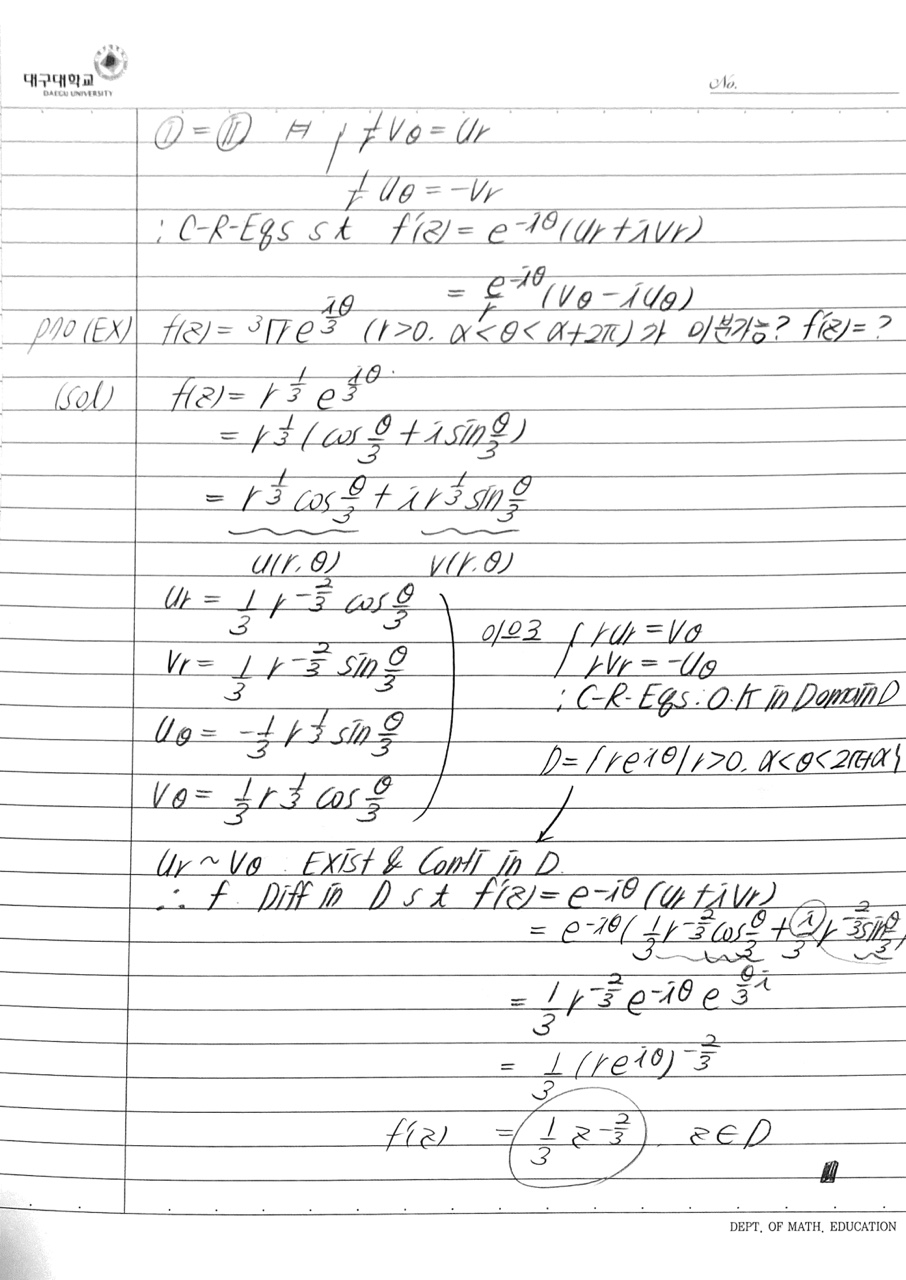 대구대학교
DAEGU UNIVERSITY
No.
Ⓘ = Ⓘⓘ ⊨ { 1/r Vθ = Ur
1/r Uθ = -Vr
: C-R-Eqs s t f'(z) = e^{-iθ}(Ur + iVr)
= e^{-iθ}/r (Vθ - iUθ)
p70 (EX) f(z) = ³√r e^{iθ/3} (r>0. α<θ<α+2π)가 미분가능? f'(z)=?
(sol) f(z) = r^{1/3} e^{iθ/3}
= r^{1/3} (cos θ/3 + i sin θ/3)
= r^{1/3} cos θ/3 + i r^{1/3} sin θ/3
u(r.θ) v(r.θ)
Ur = 1/3 r^{-2/3} cos θ/3
이으로 { rUr = Vθ
Vr = 1/3 r^{-2/3} sin θ/3
rVr = -Uθ
: C-R-Eqs : O.K in Domain D
Uθ = -1/3 r^{1/3} sin θ/3
D = {re^{iθ} | r>0. α<θ<2π+α}
Vθ = 1/3 r^{1/3} cos θ/3
Ur ~ Vθ : Exist & Conti in D.
∴ f Diff in D s t f'(z) = e^{-iθ} (Ur + iVr)
= e^{-iθ} (1/3 r^{-2/3} cos θ/3 + i/3 r^{-2/3} sin θ/3)
= 1/3 r^{-2/3} e^{-iθ} e^{θ/3 i}
= 1/3 (re^{iθ})^{-2/3}
f'(z) = 1/3 z^{-2/3} . z ∈ D
DEPT. OF MATH. EDUCATION